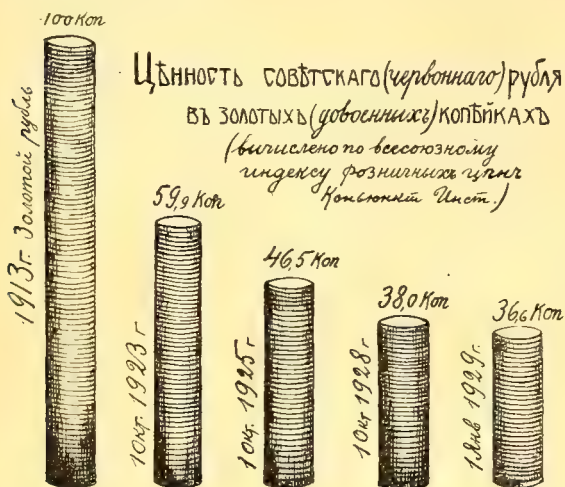 100 Коп
Цѣнность совѣтскаго (червоннаго) рубля
въ золотыхъ (довоенныхъ) копѣйкахъ
(вычислено по всесоюзному
индексу розничныхъ цѣнъ
Коньюнкт Инст.)
1913г. Золотой рубль
59,9 Коп
1 Окт. 1923 г
46,5 Коп
1 Окт. 1925 г
38,0 Коп
1 Окт 1928 г
36,6 Коп
1 Янв 1929 г.